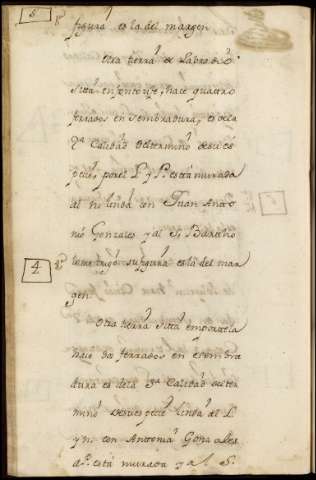 5
figura es la del margen
Otra tierra de Labradio
Sitta en fonte , hace quattro
ferrados en Sembradura, es de la
2ª Calidad de termino desu es
pecie, por el L y P. está murada
al N linda con Juan Anto
nio Gonzales y al S. Barttho
lome trigo su figura es la del mar
4
gen
Otra tierra Sitta em
hace do ferrados en sembra
dura es dela 3ª Calidad de ter
mino desu especie linda al L
y n. con Antonia Gonzales
dª. está murada y al S.